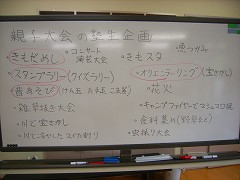 親子大会の発生企画
・きもだめし
・コンサート 演芸大会
・きもスタ
・魚つかみ
・スタンプラリー(クイズラリー)
・オリエンテーリング(宝さがし)
・昔あそび(けん玉 お手玉 こま等)
・花火
・雑草抜き大会
・キャンプファイヤーでマシュマロ
・川で宝さがし
・食料集め(野草など)
・川で冷やしたスイカ割り
・虫採り大会